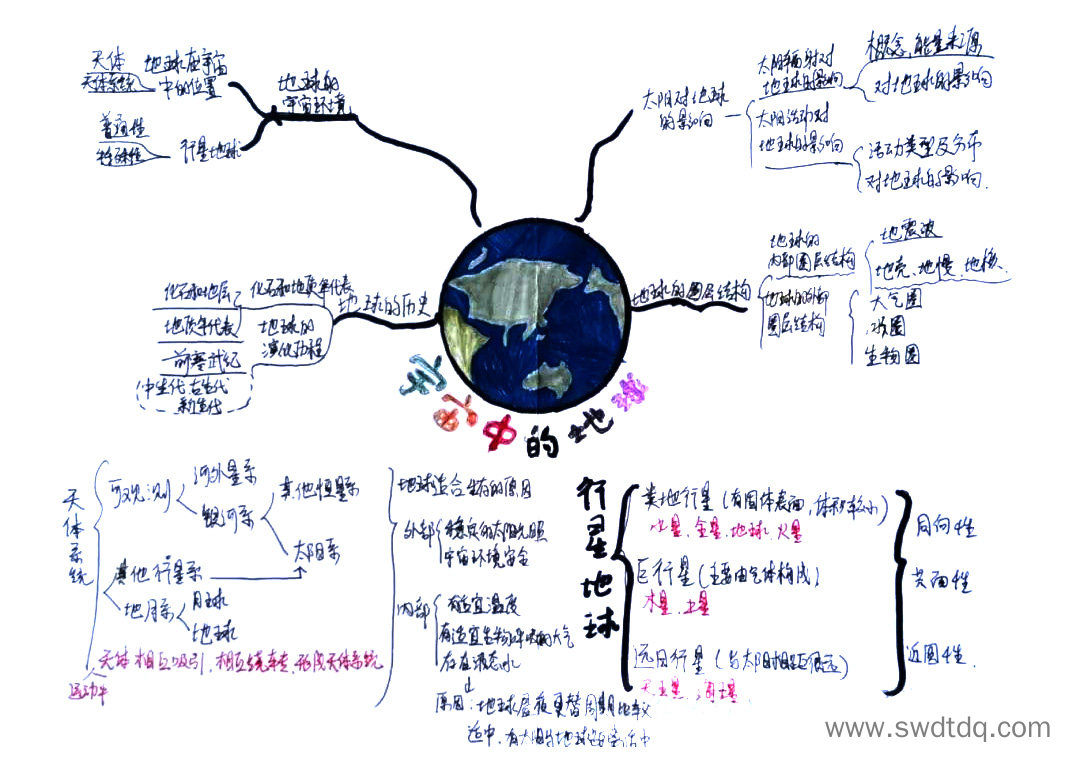 天体
天体系统
地球在宇宙
中的位置
普通性
特殊性
行星地球
地球的
宇宙环境
太阳对地球
的影响
太阳辐射对
地球的影响
概念,能量来源
对地球的影响
太阳活动对
地球的影响
活动类型及分布
对地球的影响.
化石和地层
地质年代表
化石和地质年代表
前寒武纪
中生代 古生代
新生代
地球的
演化历程
地球的历史
地球的圈层结构
地球的
内部圈层结构
地震波
地壳、地慢、地核、
地球的外部
圈层结构
大气圈
水圈
生物圈
宇宙中的地球
天体系统
可观测
河外星系
银河系
其他恒星系
太阳系
其他行星系
地月系
月球
地球
天体相互吸引,相互绕转,形成天体系统
运动中
地球适合生存的原因
外部
稳定的太阳光照
宇宙环境安全
内部
有适宜温度
有适宜生物呼吸的大气
存在液态水
原因:地球昼夜更替周期比较
适中,有太阳与地球距离适中
行星地球
类地行星(有固体表面,体积较小)
水星、金星、地球、火星
巨行星(主要由气体构成)
木星、土星
远日行星(与太阳相距很远)
天王星、海王星
同向性
共面性
近圆性.
www.swdtdq.com